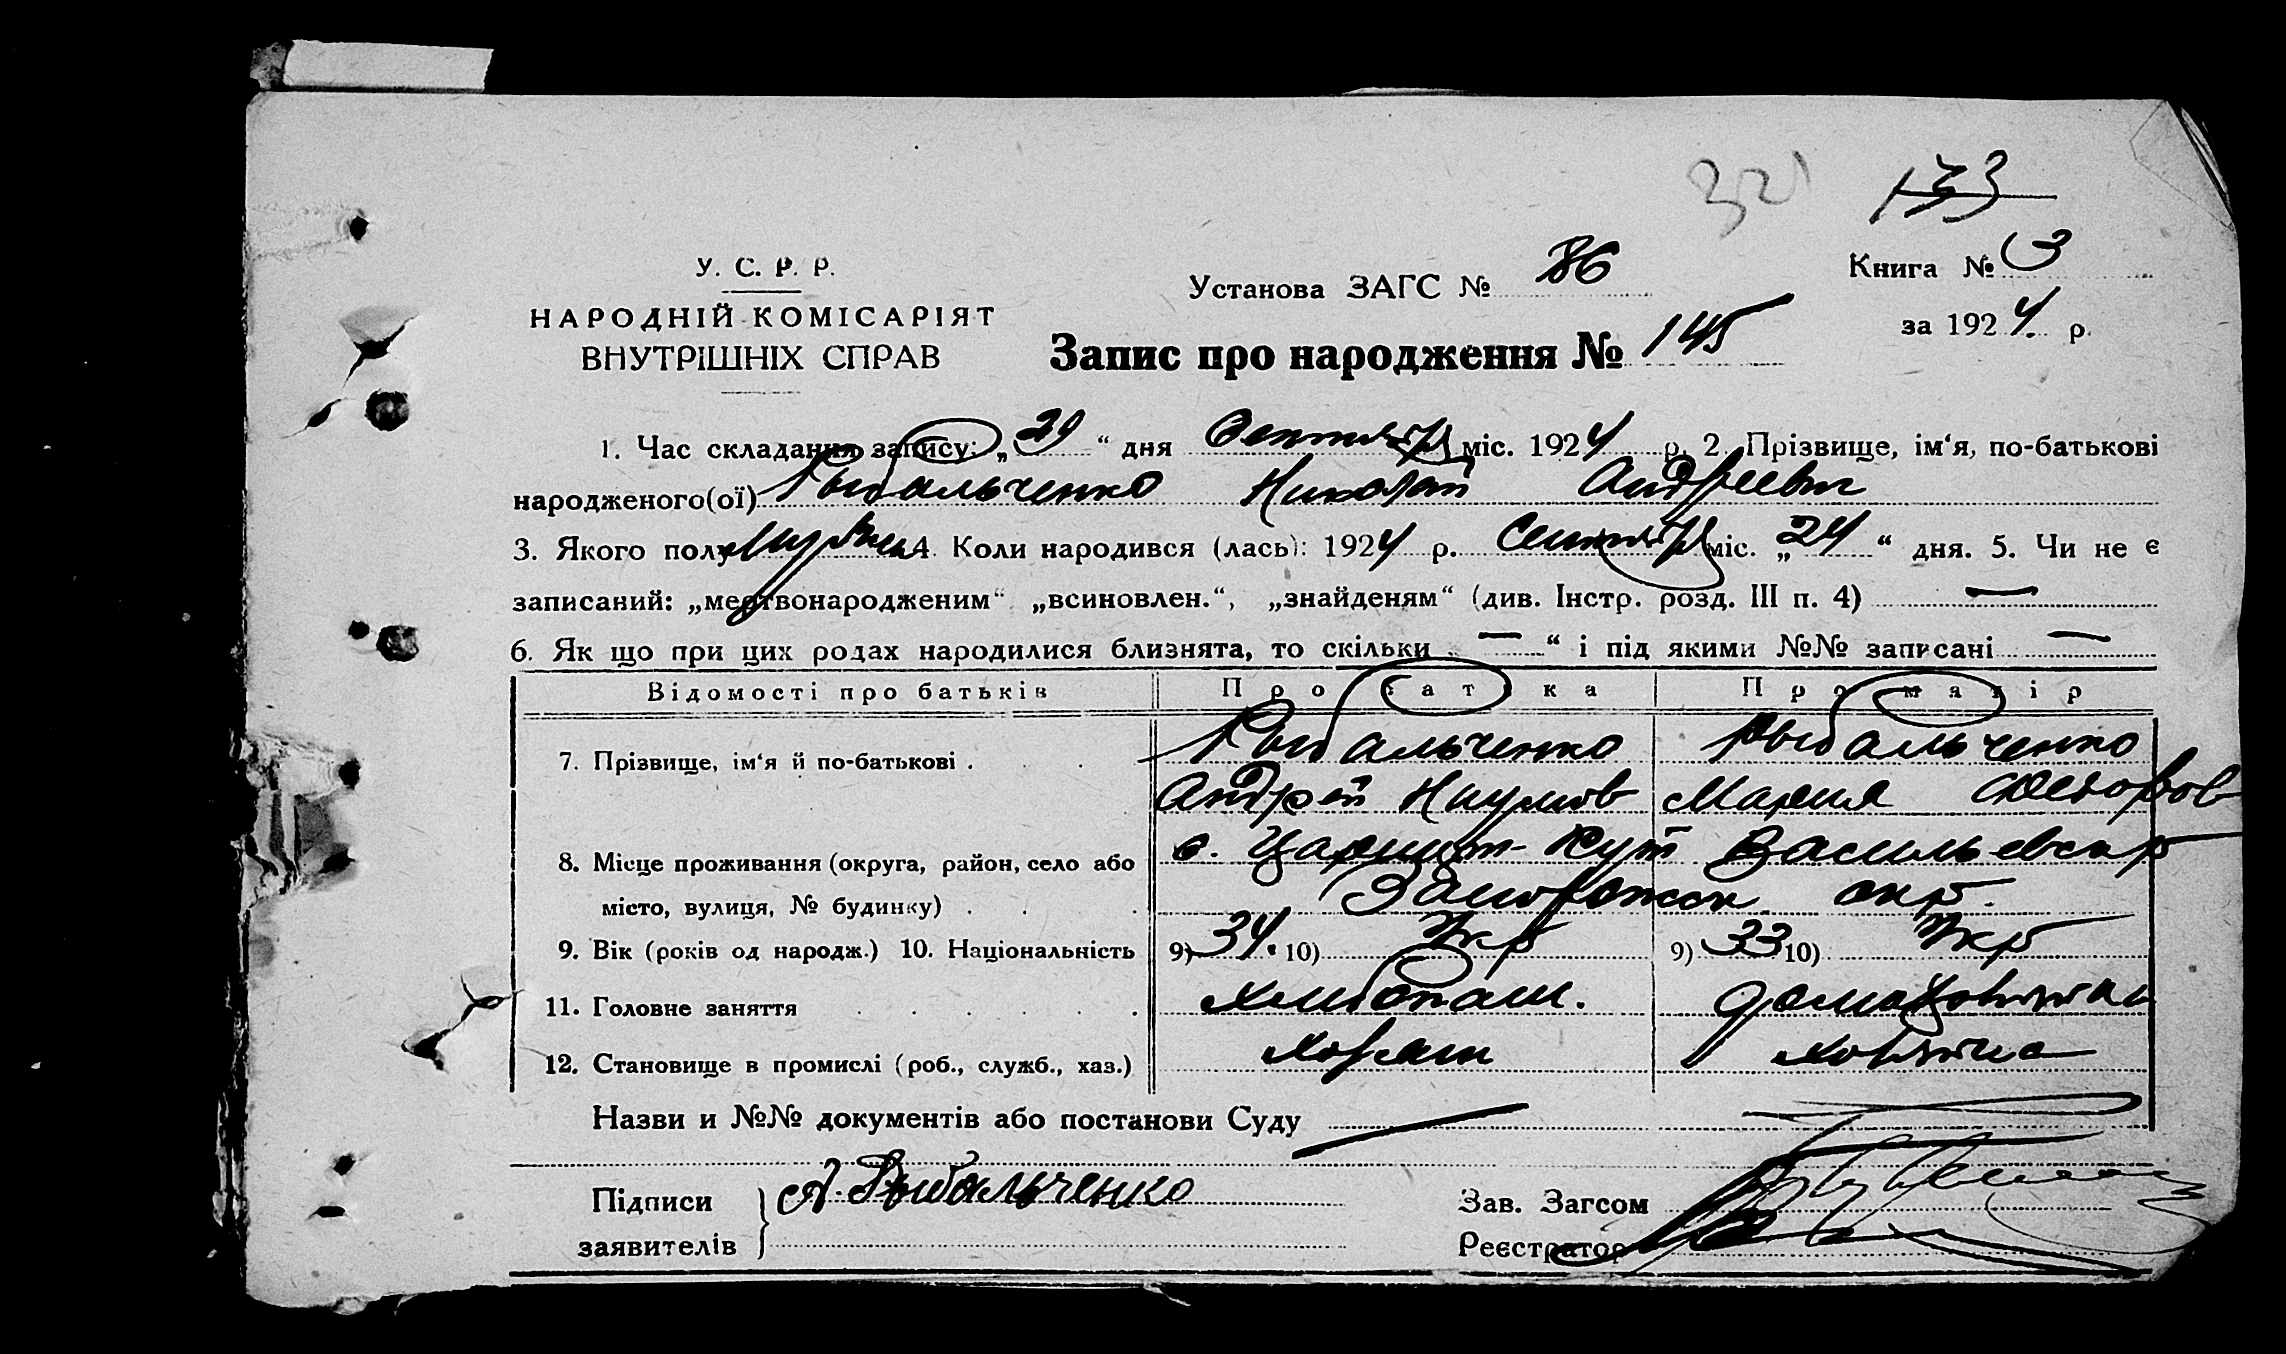 32
133
У. С. Р. Р.
НАРОДНІЙ КОМІСАРІЯТ
ВНУТРІШНІХ СПРАВ
Установа ЗАГС № 86
Книга № 3
за 1924 р.
Запис про народження № 145
1. Час складання запису: „29“ дня Сентября міс. 1924 р. 2. Прізвище, ім‘я, по-батькові
народженого(ої) Рыбальченко Николай Андреевич
3. Якого полу Мужск 4. Коли народився (лась): 1924 р. Сентября міс. „24“ дня. 5. Чи не є
записаний: „мертвонародженим“ „всиновлен.“, „знайденям“ (див. Інстр. розд. III п. 4) —
6. Як що при цих родах народилися близнята, то скільки „—“ і під якими №№ записані —
Відомості про батьків Про батька Про матір
7. Прізвище, ім‘я й по-батькові . Рыбальченко Рыбальченко
Андрей Наумов Мария Федоров
8. Місце проживання (округа, район, село або с. Царицин-Кут Васильевск р
місто, вулиця, № будинку) . Запорожск окр.
9. Вік (років од народж.) 10. Національність 9) 34. 10) Укр 9) 33 10) Укр
11. Головне заняття Хлібопаш.
12. Становище в промислі (роб., служб., хаз.)
Назви и №№ документів або постанови Суду —
Підписи А. Рыбальченко
заявителів
Зав. Загсом
Реєстратор